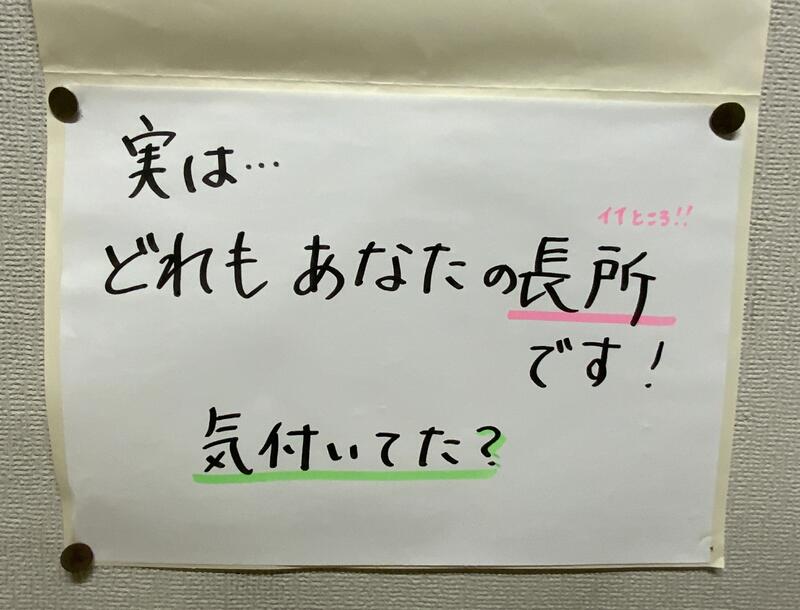 実は…
イイところ!!
どれも あなたの長所
です!
気付いてた?